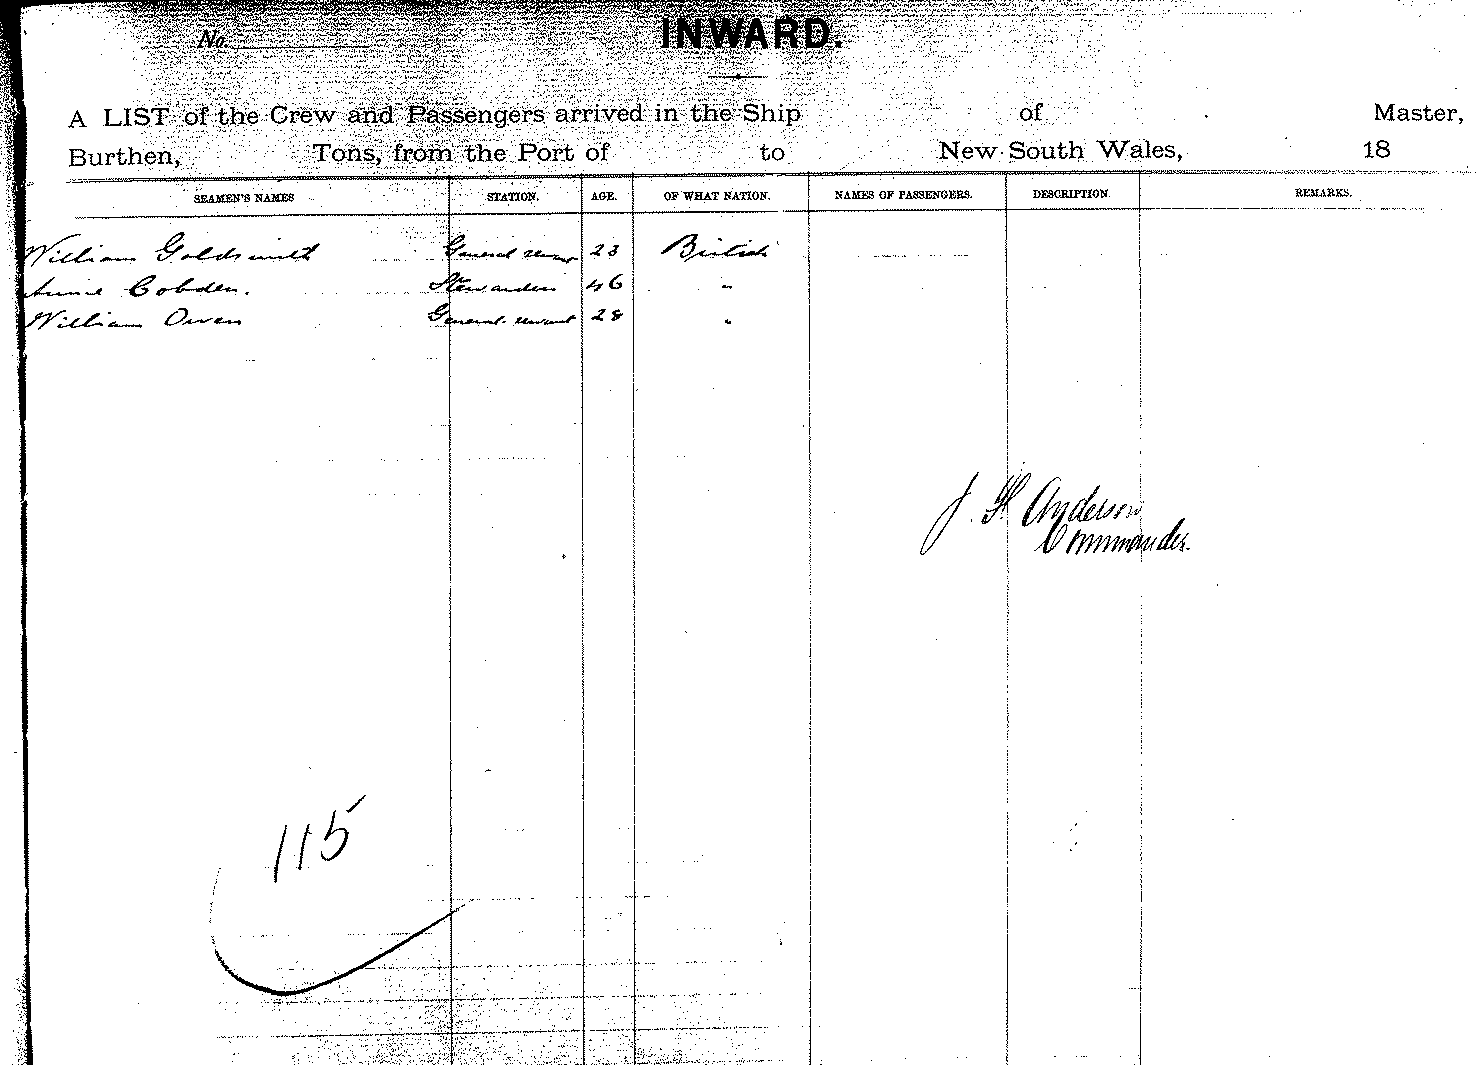 No.
INWARD.
A LIST of the Crew and Passengers arrived in the Ship of Master,
Burthen, Tons, from the Port of to New South Wales, 18
SEAMEN'S NAMES STATION. AGE. OF WHAT NATION. NAMES OF PASSENGERS. DESCRIPTION. REMARKS.
William Goldsmith General 23 British
Annie Cobden. Stewardess 46 "
William Owen General servant 28 "
J. H. Anderson
Commander.
115